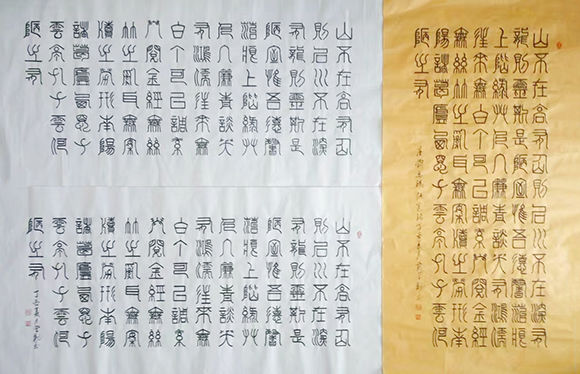 山不在高有仙
則名水不在深
有龍則靈斯是
陋室惟吾德馨
苔痕上階綠草
色入簾青談笑
有鴻儒往來無
白丁可以調素
琴閱金經無絲
竹之亂耳無案
牘之勞形南陽
諸葛廬西蜀子
雲亭孔子云何
陋之有
山不在高有仙
則名水不在深
有龍則靈斯是
陋室惟吾德馨
苔痕上階綠草
色入簾青談笑
有鴻儒往來無
白丁可以調素
琴閱金經無絲
竹之亂耳無案
牘之勞形南陽
諸葛廬西蜀子
雲亭孔子云何
陋之有
山不在高有仙則名水不在深有
龍則靈斯是陋室惟吾德馨苔痕
上階綠草色入簾青談笑有鴻儒
往來無白丁可以調素琴閱金經
無絲竹之亂耳無案牘之勞形南
陽諸葛廬西蜀子雲亭孔子云何
陋之有